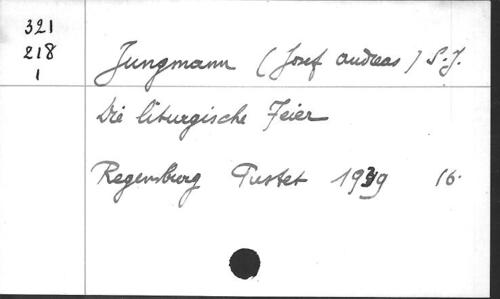 321
218
1
Jungmann (Josef Andreas) S.J.
Die liturgische Feier
Regensburg Pustet 1939 16.